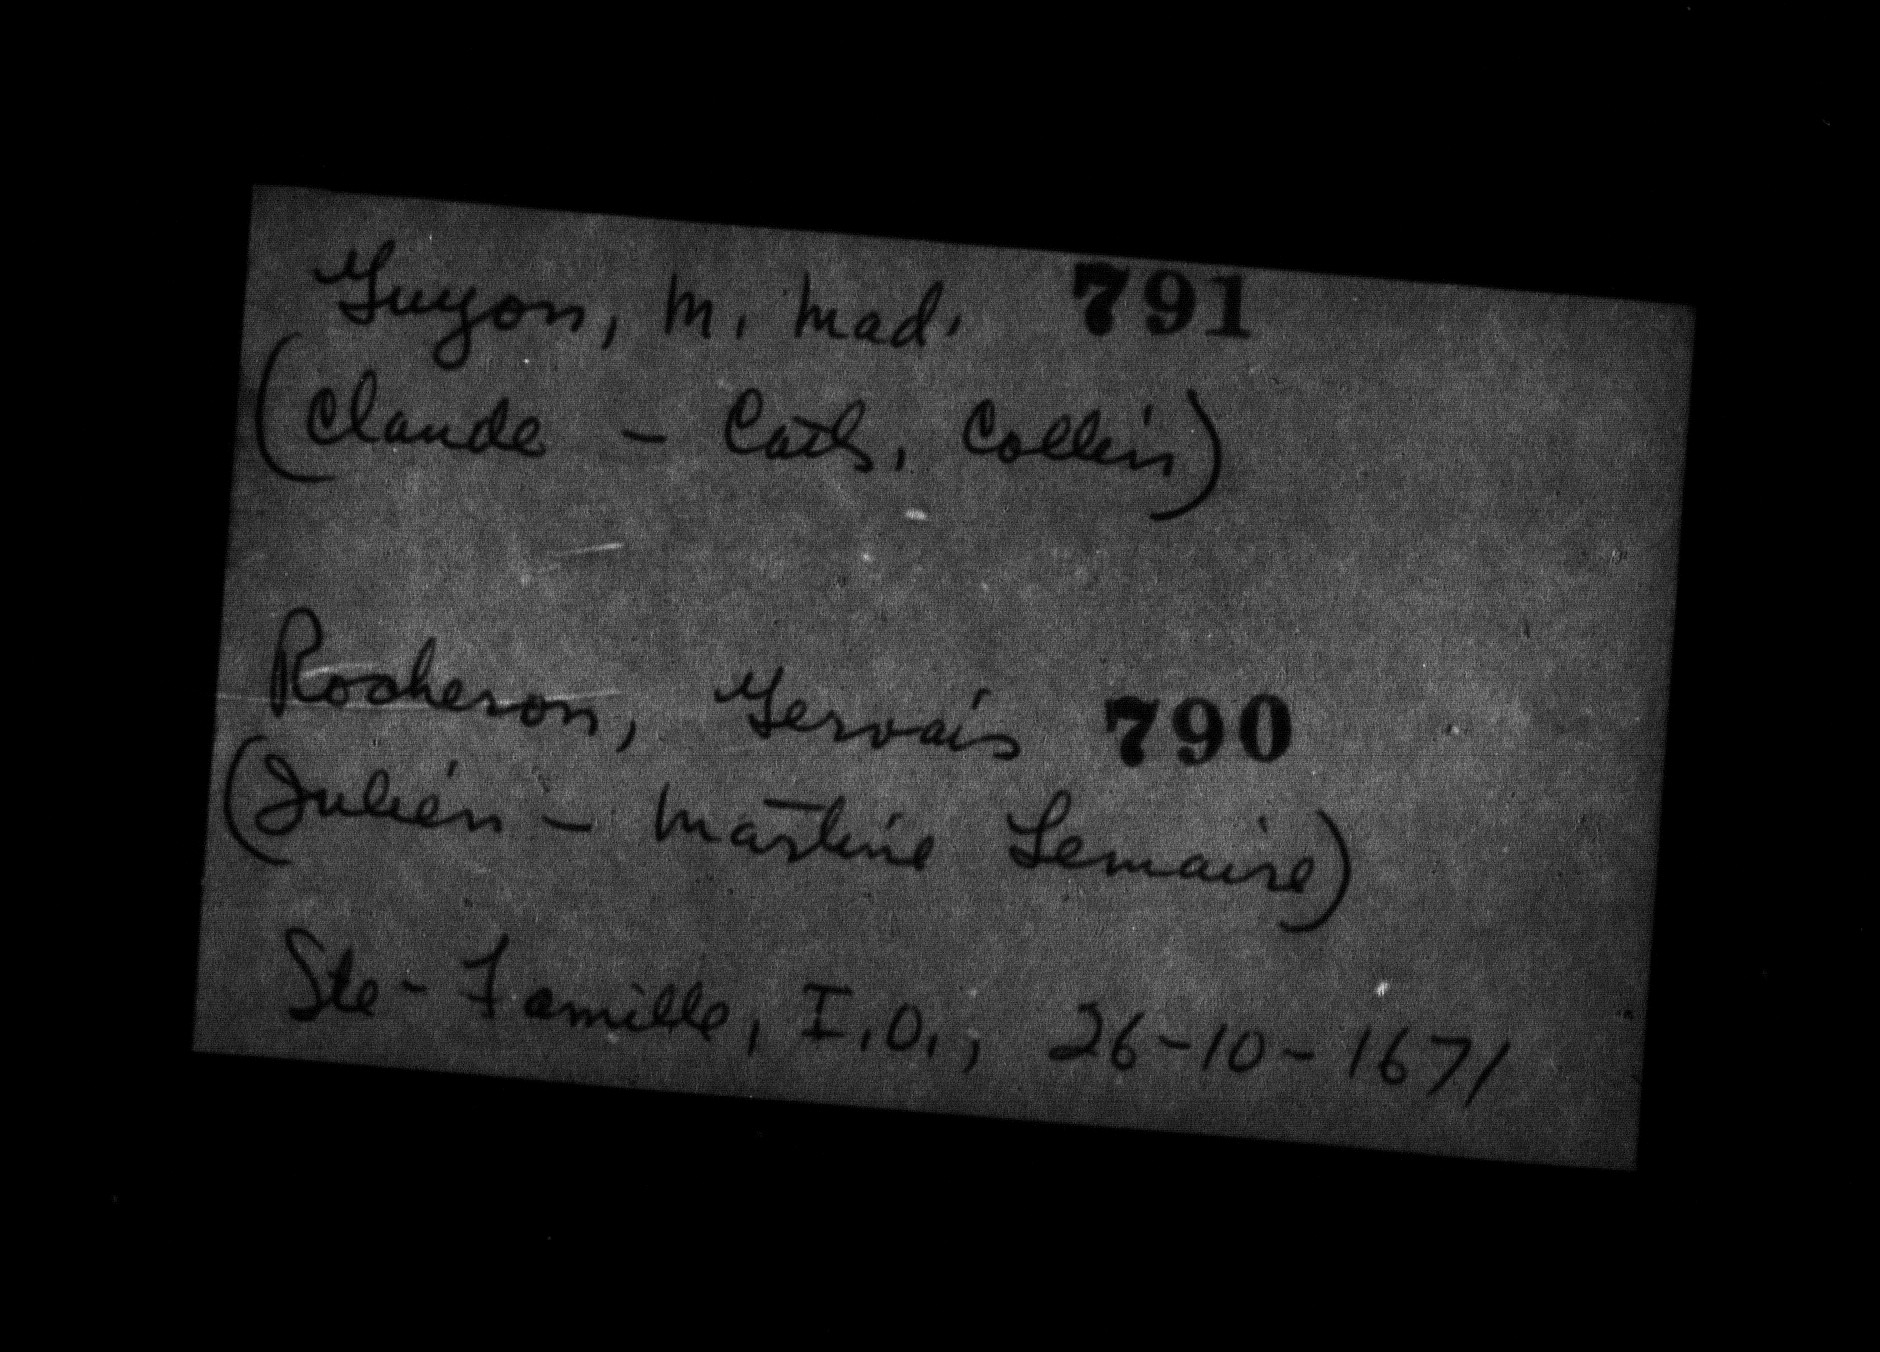 Guyon, M. Mad. 791
(Claude - Cath. Collin)
Rocheron, Gervais 790
(Julien - Martine Lemaire)
Ste-Famille, I.O., 26-10-1671